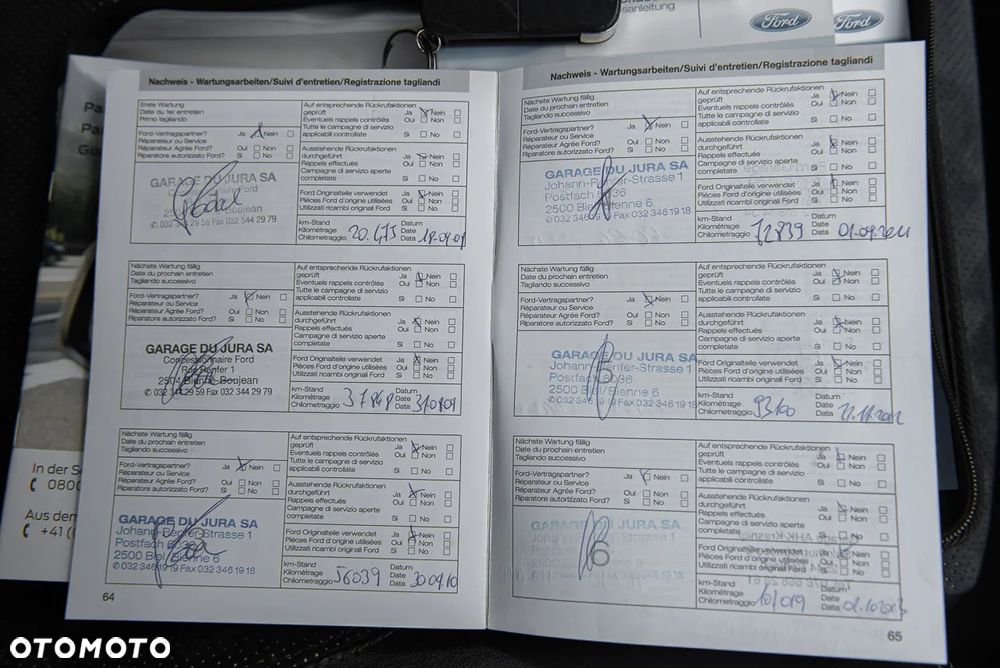 Ford
Ford
sanleitung
Nachweis - Wartungsarbeiten/Suivi d'entretien/Registrazione tagliandi
Erste Wartung
Date du 1er entretien
Primo tagliando
Ford-Vertragspartner? Ja Nein
Réparateur ou Service
Réparateur Agréé Ford? Oui Non
Riparatore autorizzato Ford? Si No
GARAGE DU JURA SA
Fax 032 344 29 79
Auf entsprechende Rückrufaktionen
geprüft Ja Nein
Eventuels rappels contrôlés Oui Non
Tutte le campagne di servizio
applicabili controllate Si No
Ausstehende Rückrufaktionen
durchgeführt Ja Nein
Rappels effectués Oui Non
Campagne di servizio aperte
completate Si No
Ford Originalteile verwendet Ja Nein
Pièces Ford d'origine utilisées Oui Non
Utilizzati ricambi original Ford Si No
km-Stand Datum
Kilométrage Date
Chilometraggio 20.473 Data
Nächste Wartung fällig
Date du prochain entretien
Tagliando successivo
Ford-Vertragspartner? Ja Nein
Réparateur ou Service
Réparateur Agréé Ford? Oui Non
Riparatore autorizzato Ford? Si No
GARAGE DU JURA SA
Concessionnaire Ford
Rue Renfer 1
2504 Bienne-Boujean
✆ 032 344 29 59 Fax 032 344 29 79
Auf entsprechende Rückrufaktionen
geprüft Ja Nein
Eventuels rappels contrôlés Oui Non
Tutte le campagne di servizio
applicabili controllate Si No
Ausstehende Rückrufaktionen
durchgeführt Ja Nein
Rappels effectués Oui Non
Campagne di servizio aperte
completate Si No
Ford Originalteile verwendet Ja Nein
Pièces Ford d'origine utilisées Oui Non
Utilizzati ricambi original Ford Si No
km-Stand Datum
Kilométrage Date
Chilometraggio 37848 Data
Nächste Wartung fällig
Date du prochain entretien
Tagliando successivo
Ford-Vertragspartner? Ja Nein
Réparateur ou Service
Réparateur Agréé Ford? Oui Non
Riparatore autorizzato Ford? Si No
GARAGE DU JURA SA
Johann-Renfer-Strasse 1
Postfach 8036
2500 Biel/Bienne 6
✆ 032 346 19 19 Fax 032 346 19 18
Auf entsprechende Rückrufaktionen
geprüft Ja Nein
Eventuels rappels contrôlés Oui Non
Tutte le campagne di servizio
applicabili controllate Si No
Ausstehende Rückrufaktionen
durchgeführt Ja Nein
Rappels effectués Oui Non
Campagne di servizio aperte
completate Si No
Ford Originalteile verwendet Ja Nein
Pièces Ford d'origine utilisées Oui Non
Utilizzati ricambi original Ford Si No
km-Stand Datum
Kilométrage Date
Chilometraggio 56039 Data 30.09.10
64
Nachweis - Wartungsarbeiten/Suivi d'entretien/Registrazione tagliandi
Nächste Wartung fällig
Date du prochain entretien
Tagliando successivo
Ford-Vertragspartner? Ja Nein
Réparateur ou Service
Réparateur Agréé Ford? Oui Non
Riparatore autorizzato Ford? Si No
GARAGE DU JURA SA
Johann-Renfer-Strasse 1
Postfach 8036
2500 Biel/Bienne 6
✆ 032 346 19 19 Fax 032 346 19 18
Auf entsprechende Rückrufaktionen
geprüft Ja Nein
Eventuels rappels contrôlés Oui Non
Tutte le campagne di servizio
applicabili controllate Si No
Ausstehende Rückrufaktionen
durchgeführt Ja Nein
Rappels effectués Oui Non
Campagne di servizio aperte
completate Si No
Ford Originalteile verwendet Ja Nein
Pièces Ford d'origine utilisées Oui Non
Utilizzati ricambi original Ford Si No
km-Stand Datum
Kilométrage Date
Chilometraggio 72839 Data
Nächste Wartung fällig
Date du prochain entretien
Tagliando successivo
Ford-Vertragspartner? Ja Nein
Réparateur ou Service
Réparateur Agréé Ford? Oui Non
Riparatore autorizzato Ford? Si No
GARAGE DU JURA SA
Johann-Renfer-Strasse 1
Postfach 8036
2500 Biel/Bienne 6
✆ 032 346 19 19 Fax 032 346 19 18
Auf entsprechende Rückrufaktionen
geprüft Ja Nein
Eventuels rappels contrôlés Oui Non
Tutte le campagne di servizio
applicabili controllate Si No
Ausstehende Rückrufaktionen
durchgeführt Ja Nein
Rappels effectués Oui Non
Campagne di servizio aperte
completate Si No
Ford Originalteile verwendet Ja Nein
Pièces Ford d'origine utilisées Oui Non
Utilizzati ricambi original Ford Si No
km-Stand Datum
Kilométrage Date
Chilometraggio 93100 Data
Nächste Wartung fällig
Date du prochain entretien
Tagliando successivo
Ford-Vertragspartner? Ja Nein
Réparateur ou Service
Réparateur Agréé Ford? Oui Non
Riparatore autorizzato Ford? Si No
GARAGE DU JURA SA
Auf entsprechende Rückrufaktionen
geprüft Ja Nein
Eventuels rappels contrôlés Oui Non
Tutte le campagne di servizio
applicabili controllate Si No
Ausstehende Rückrufaktionen
durchgeführt Ja Nein
Rappels effectués Oui Non
Campagne di servizio aperte
completate Si No
Ford Originalteile verwendet Ja Nein
Pièces Ford d'origine utilisées Oui Non
Utilizzati ricambi original Ford Si No
km-Stand Datum
Kilométrage Date
Chilometraggio 107019 Data
65
In der
0800
Aus dem
+41
OTOMOTO